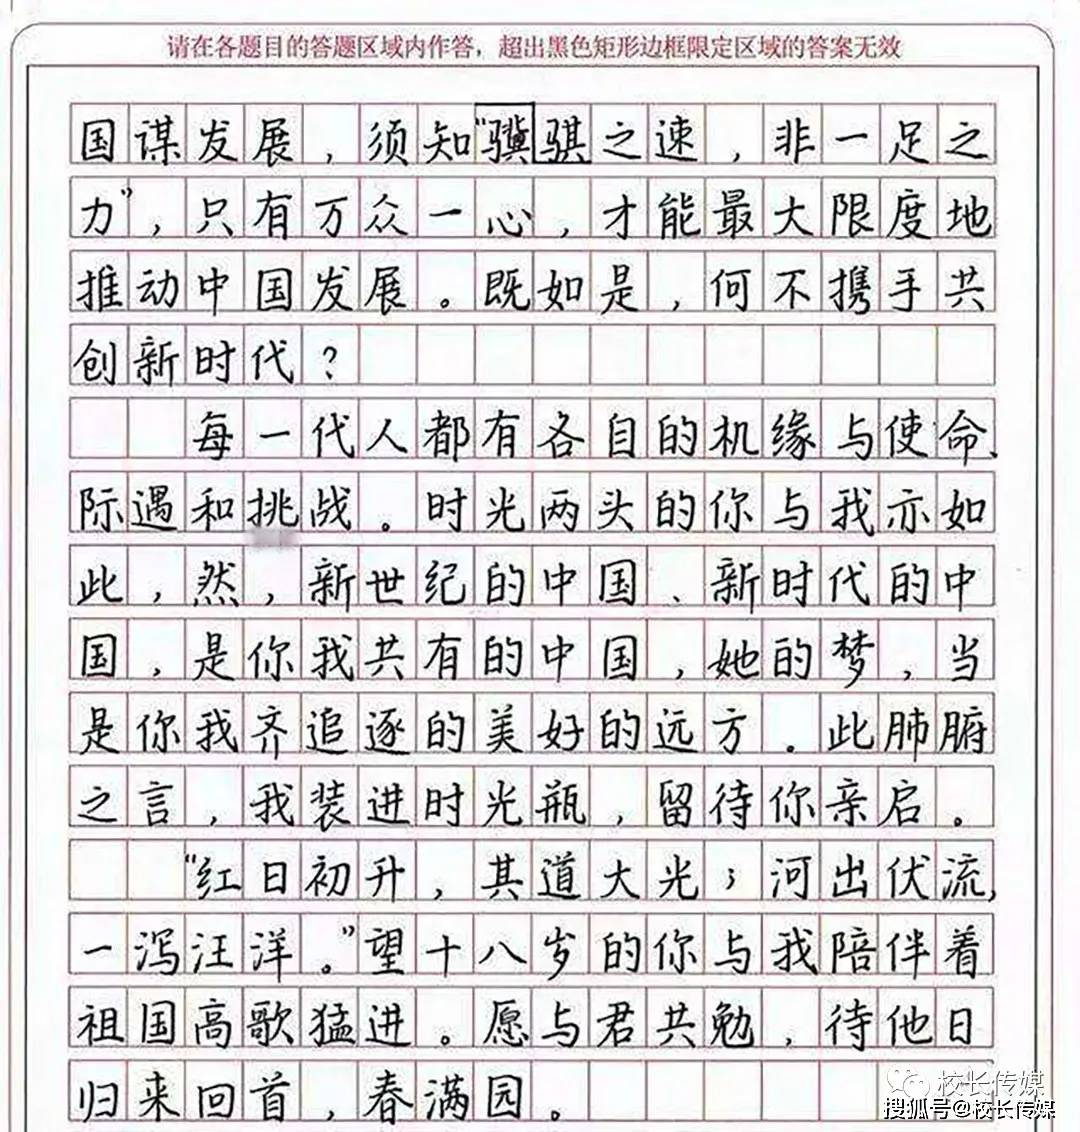 请在各题目的答题区域内作答，超出黑色矩形边框限定区域的答案无效
国谋发展，须知“骥骐之速，非一足之
力”，只有万众一心，才能最大限度地
推动中国发展。既如是，何不携手共
创新时代？
每一代人都有各自的机缘与使命、
际遇和挑战。时光两头的你与我亦如
此，然，新世纪的中国、新时代的中
国，是你我共有的中国，她的梦，当
是你我齐追逐的美好的远方。此肺腑
之言，我装进时光瓶，留待你亲启。
“红日初升，其道大光；河出伏流，
一泻汪洋。”望十八岁的你与我陪伴着
祖国高歌猛进。愿与君共勉，待他日
归来回首，春满园。
校长传媒
搜狐号@校长传媒